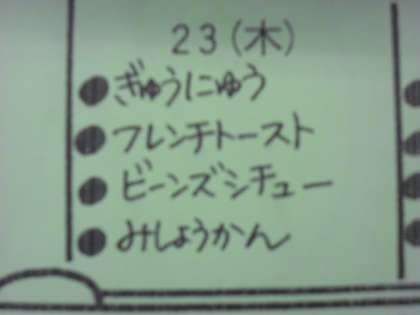 23(木)
●ぎゅうにゅう
●フレンチトースト
●ビーンズシチュー
●みしょうかん